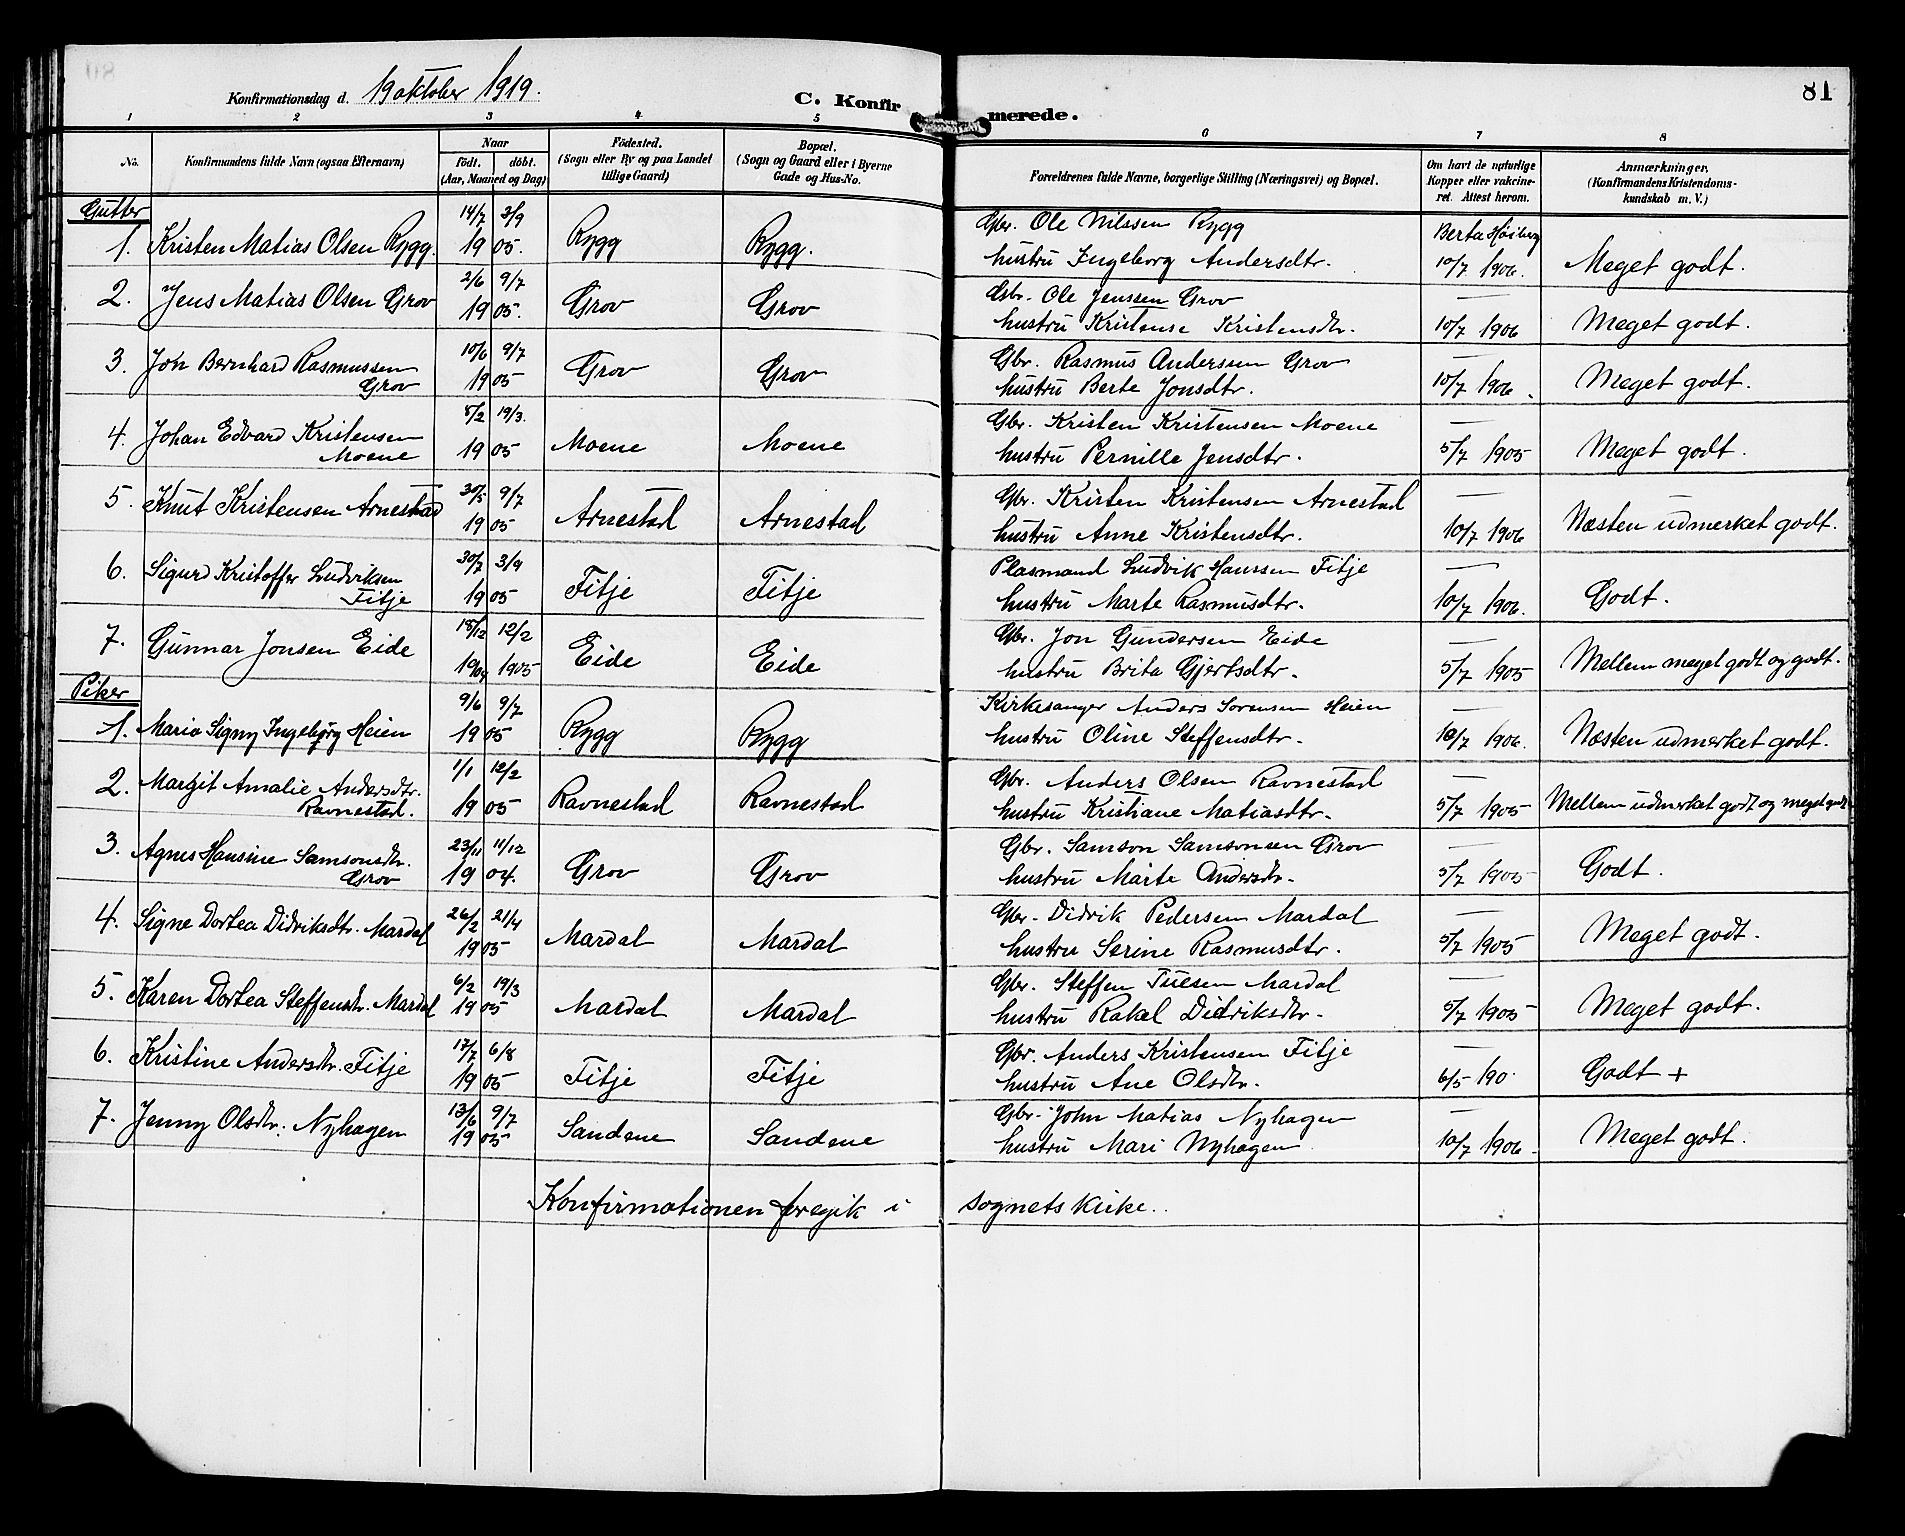 Konfirmationsdag d. 19 oktober 1919.
C. Konfirmerede.
81
1 2 3 4 5 6 7 8
No.
Konfirmandens fulde Navn (ogsaa Efternavn)
Naar
födt. döbt.
(Aar, Maaned og Dag)
Födested.
(Sogn eller By og paa Landet
tillige Gaard)
Bopæl.
(Sogn og Gaard eller i Byerne
Gade og Hus-No.
Forældrenes fulde Navne, borgerlige Stilling (Næringsvei) og Bopæl.
Om havt de naturlige
Kopper eller vakcine-
ret. Attest herom.
Anmærkninger,
(Konfirmandens Kristendoms-
kundskab m. V.)
Gutter
14/7 3/9 Gbr. Ole Nilssen Rygg Berta Höiberg
1. Kristen Matias Olsen Rygg. 1905. Rygg Rygg. hustru Ingeborg Andersdtr. 10/7 1906. Meget godt.
2/6 9/7 Gbr. Ole Jenssen Grov —
2. Jens Matias Olsen Grov 1905. Grov Grov hustru Kristense Kristensdtr. 10/7 1906 Meget godt.
3. Jon Bernhard Rasmussen 10/6 9/7 Gbr. Rasmus Anderssen Grov —
Grov 1905 Grov Grov hustru Berte Jonsdtr. 10/7 1906. Meget godt.
4. Johan Edvard Kristensen 8/2 19/3. Gbr. Kristen Kristensen Moene
Moene 1905 Moene Moene hustru Pernille Jensdtr. 5/7 1905 Meget godt.
5. Knut Kristensen Arnestad 30/5 9/7 Gbr. Kristen Kristensen Arnestad —
1905 Arnestad Arnestad hustru Anne Kristensdtr. 10/7 1906 Næsten udmerket godt.
6. Sigurd Kristoffer Ludviksen 30/7 3/9 Plasmand Ludvik Hanssen Fitje —
Fitje 1905 Fitje Fitje hustru Marte Rasmusdtr. 10/7 1906. Godt.
7. Gunnar Jonsen Eide 18/12 12/2 Gbr. Jon Gundersen Eide —
1904 1905 Eide Eide hustru Brita Gjertsdtr. 5/7 1905 Mellem meget godt og godt.
Piker
9/6 9/7 Kirkesanger Anders Sörensen Heien —
1. Marie Signy Ingebjørg Heien 1905 Rygg Rygg hustru Oline Steffensdtr. 10/7 1906. Næsten udmerket godt.
2. Margit Amalie Andersdtr. 1/1 12/2 Gbr. Anders Olsen Ravnestad —
Ravnestad. 1905 Ravnestad Ravnestad hustru Kristiane Matiasdtr. 5/7 1905 Mellem udmerket godt og meget godt
3. Agnes Hansine Samsonsdtr. 23/11 11/12 Gbr. Samson Samsonsen Grov —
Grov 1904. Grov Grov hustru Marte Andersdtr. 5/7 1905 Godt.
4. Signe Dortea Didriksdtr. Mardal 26/2 21/4 Gbr. Didrik Pedersen Mardal —
1905 Mardal Mardal hustru Serine Rasmusdtr. 5/7 1905 Meget godt.
5. Karen Dortea Steffensdtr. Mardal 6/2 19/3 Gbr. Steffen Tuesen Mardal —
1905 Mardal Mardal hustru Rakel Didriksdtr. 5/7 1905 Meget godt.
6. Kristine Andersdtr. Fitje 17/7 6/8 Gbr. Anders Kristensen Fitje —
1905 Fitje Fitje hustru Ane Olsdtr. 6/5 190. Godt +
7. Jenny Olsdtr. Nyhagen 13/6 9/7 Gbr. John Matias Nyhagen —
1905 Sandene Sandene hustru Mari Nyhagen 10/7 1906. Meget godt.
Konfirmationen foregik i sognets kirke.